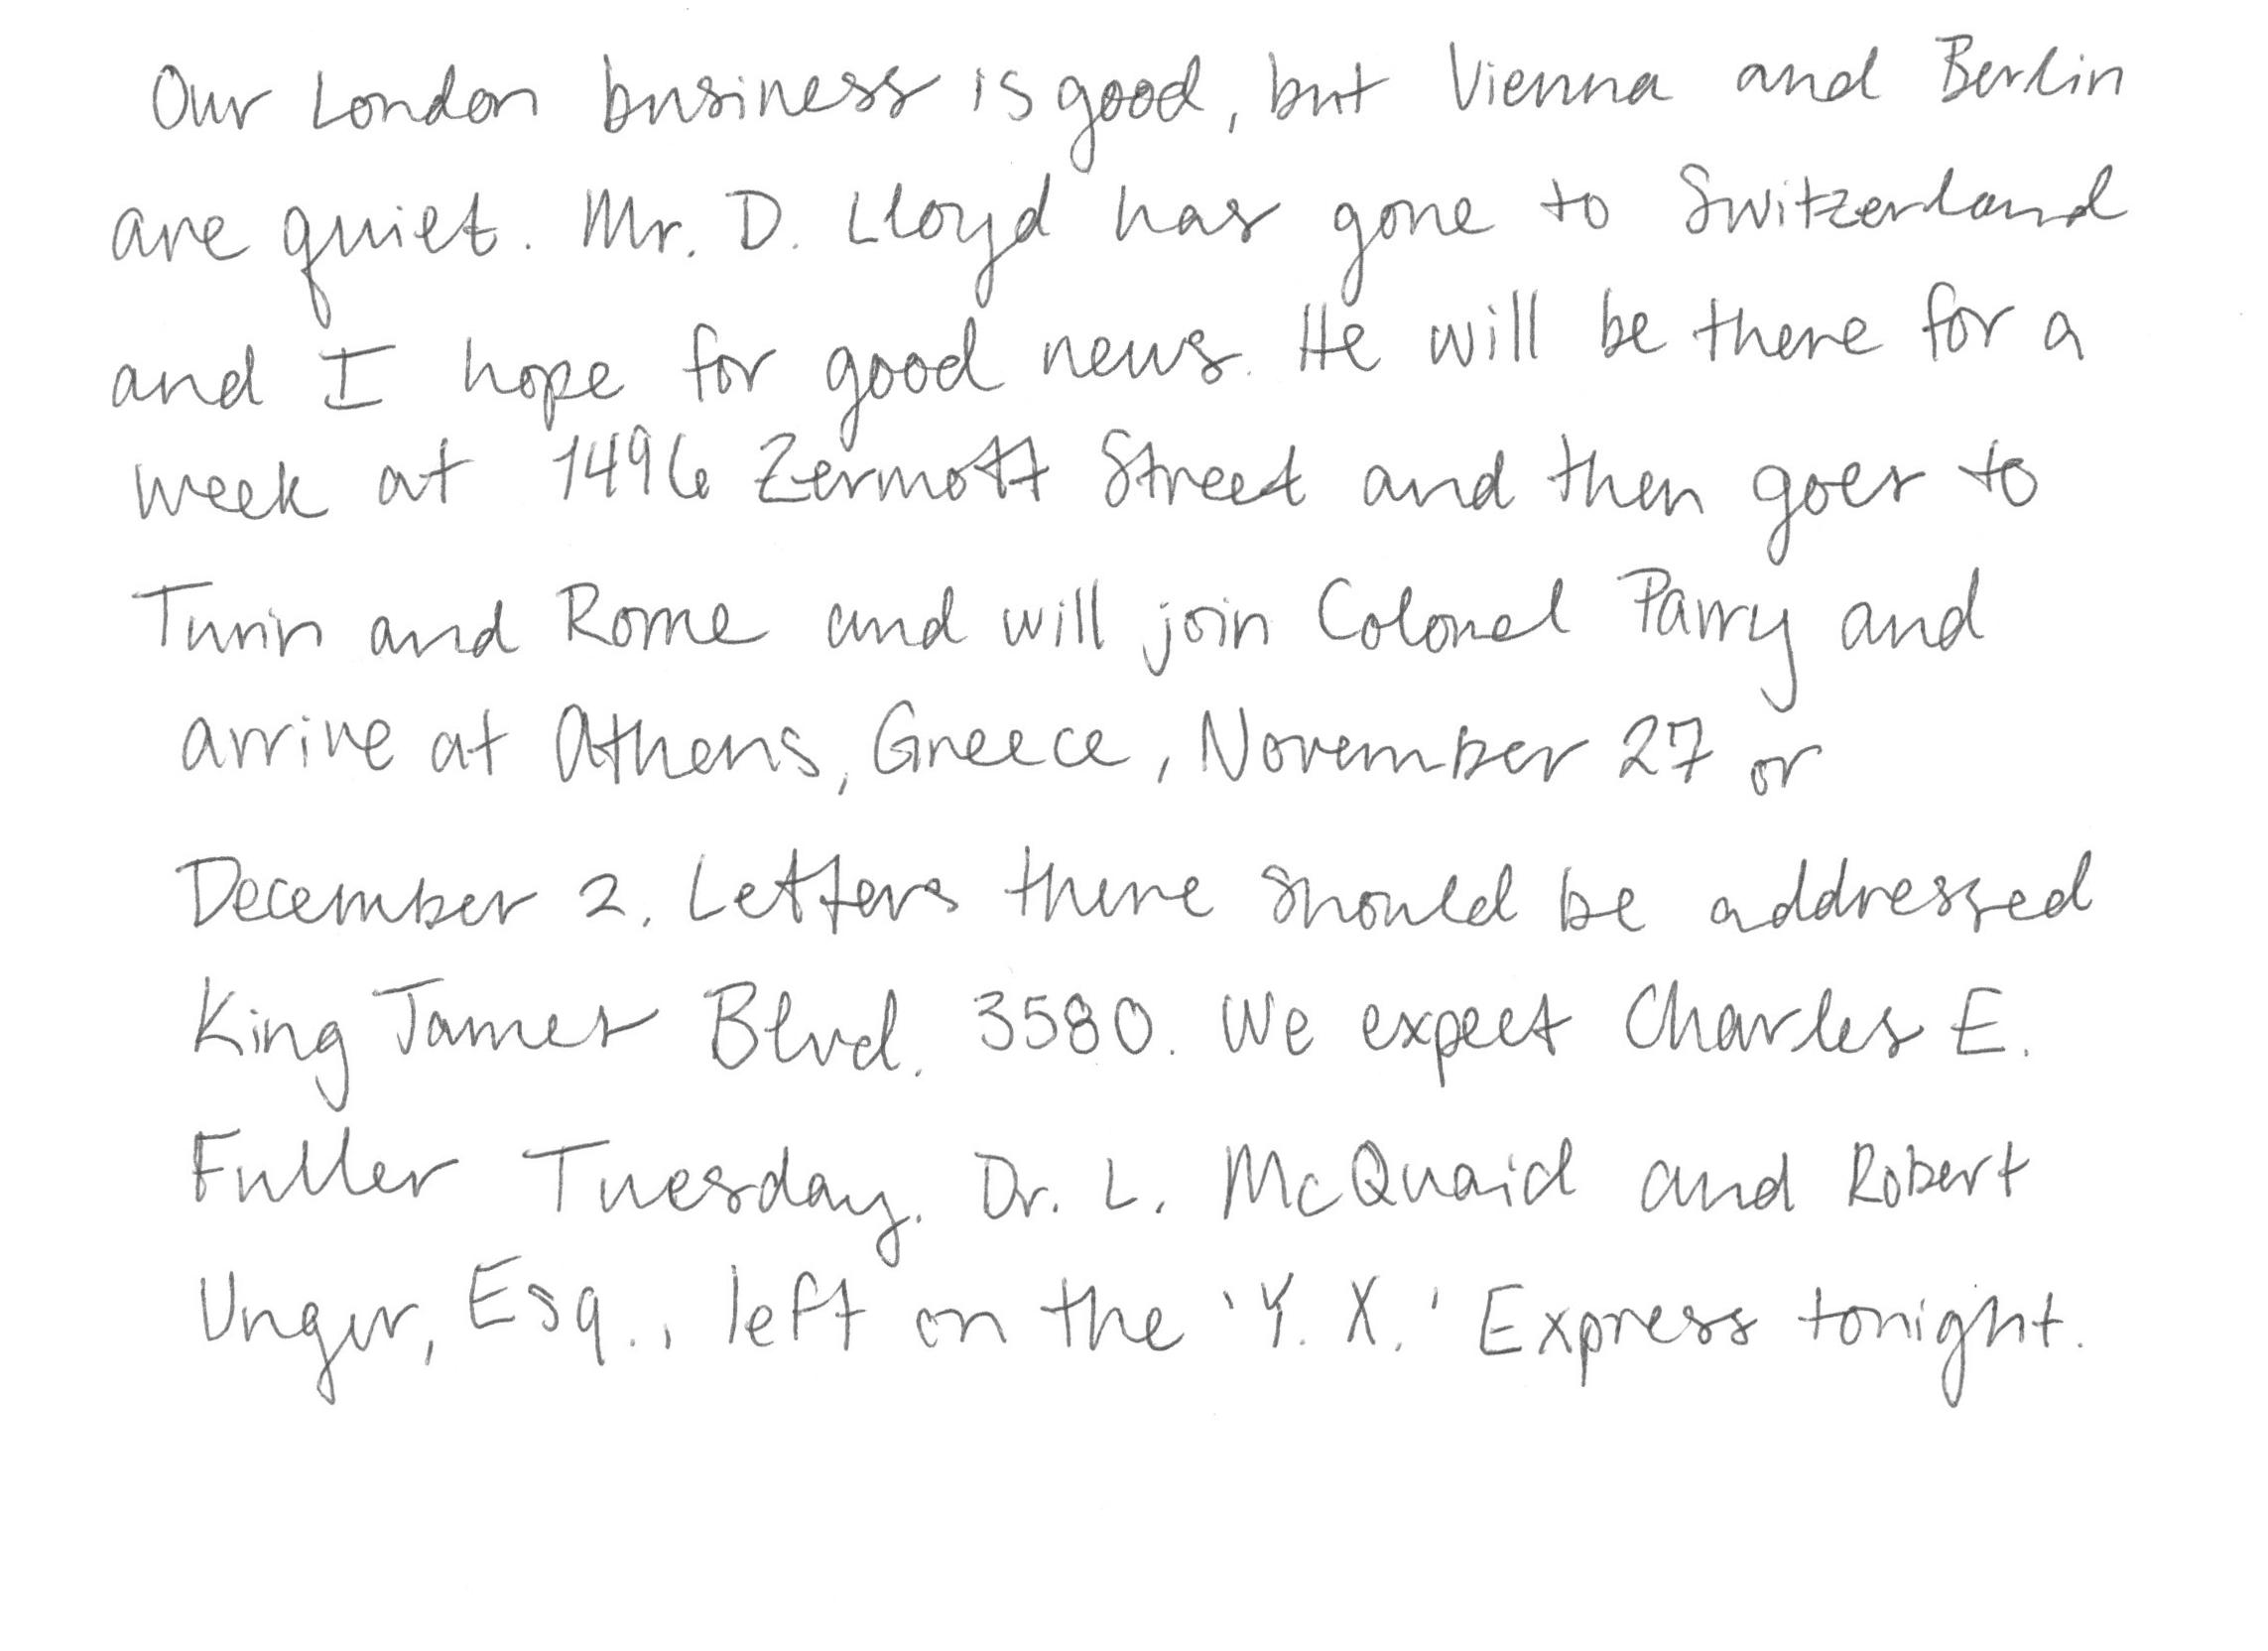 Our London business is good, but Vienna and Berlin
are quiet. Mr. D. Lloyd has gone to Switzerland
and I hope for good news. He will be there for a
week at 1496 Zermott Street and then goes to
Turin and Rome and will join Colonel Parry and
arrive at Athens, Greece, November 27 or
December 2. Letters there should be addressed
King James Blvd. 3580. We expect Charles E.
Fuller Tuesday. Dr. L. McQuaid and Robert
Unger, Esq., left on the 'Y. X.' Express tonight.